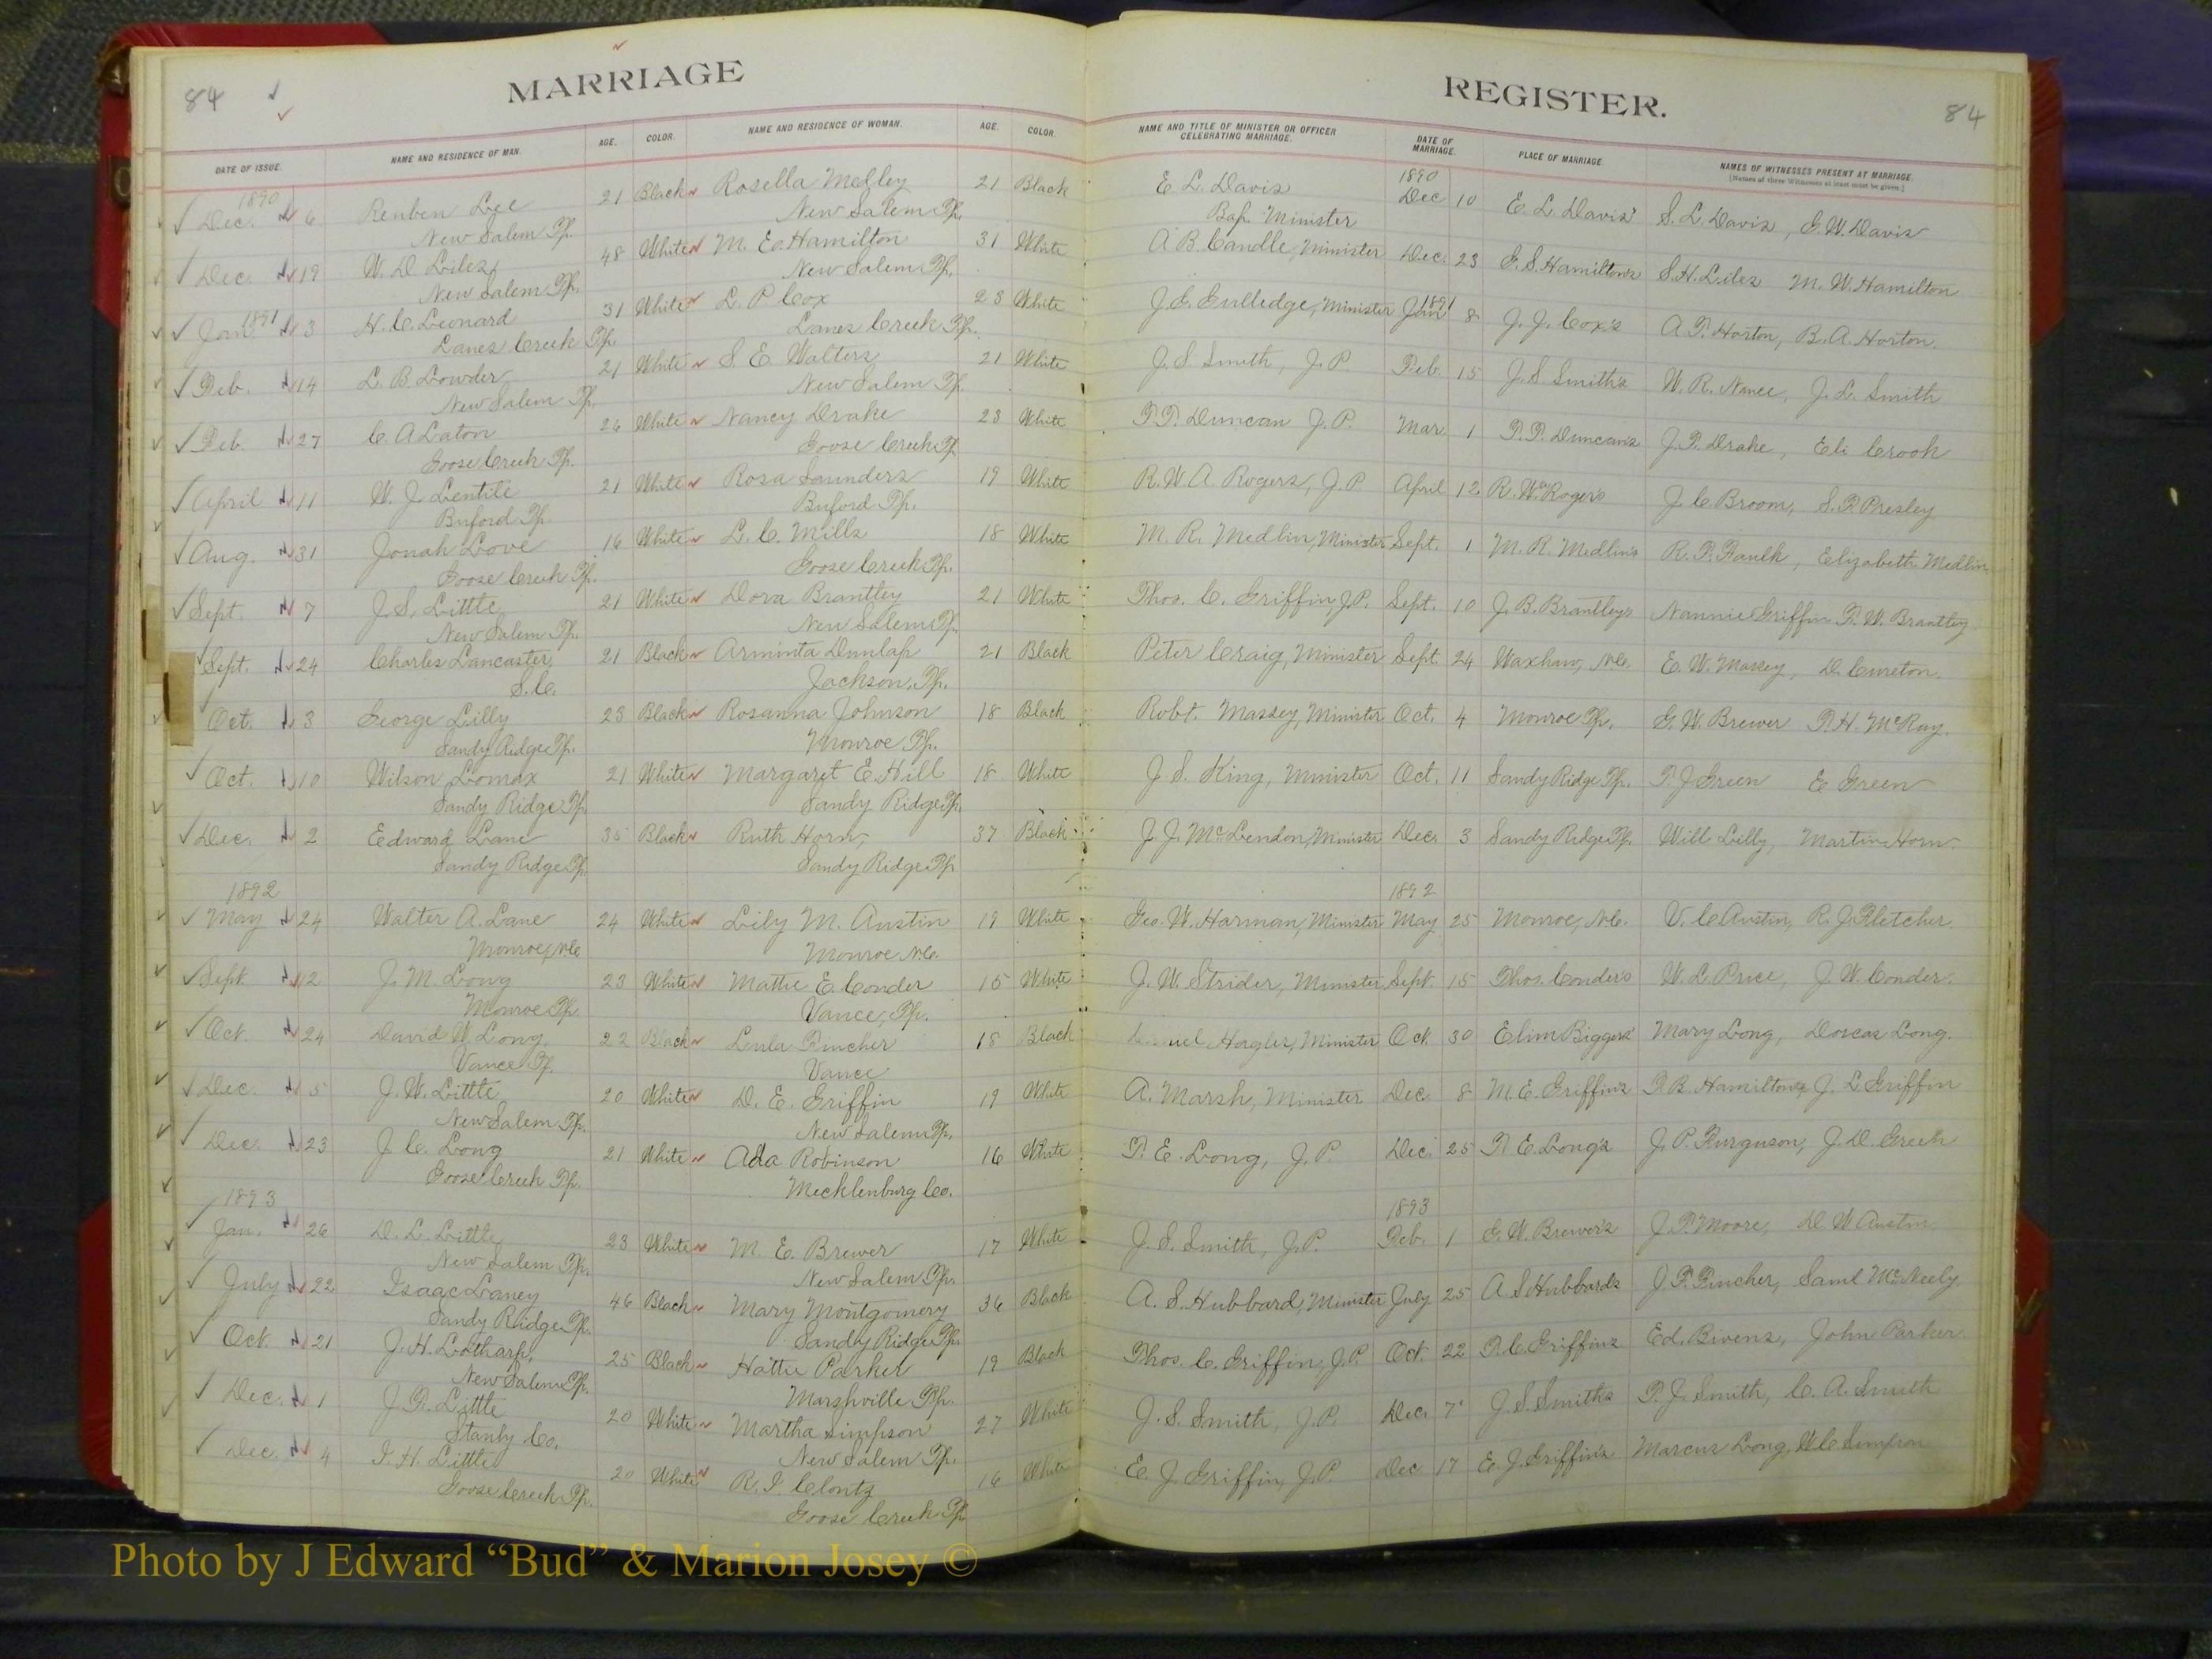 84
MARRIAGE
REGISTER.
84
DATE OF ISSUE.
NAME AND RESIDENCE OF MAN.
AGE.
COLOR.
NAME AND RESIDENCE OF WOMAN.
AGE.
COLOR.
NAME AND TITLE OF MINISTER OR OFFICER
CELEBRATING MARRIAGE.
DATE OF
MARRIAGE.
PLACE OF MARRIAGE.
NAMES OF WITNESSES PRESENT AT MARRIAGE.
[Names of three Witnesses at least must be given.]
1890 1890
Dec. 6 Reuben Lee 21 Black Rosella Medley 21 Black E. L. Davis Dec 10 E. L. Davis' S. L. Davis, G. W. Davis
New Salem Tp. New Salem Tp. Bap. Minister
Dec. 19 W. D. Liles, 48 White M. E. Hamilton 31 White A. B. Caudle, Minister Dec. 23 G. S. Hamiltons S. H. Liles M. W. Hamilton
New Salem Tp. New Salem Tp.
1891 1891
Jan. 3 H. C. Leonard 31 White L. P. Cox 23 White J. E. Gulledge, Minister Jan 8 J. J. Cox's A. T. Horton, B. A. Horton
Lanes Creek Tp. Lanes Creek Tp.
Feb. 14 L. B. Lowder 21 White S. E. Walters 21 White J. S. Smith, J. P. Feb. 15 J. S. Smith's W. R. Nance, J. L. Smith
New Salem Tp. New Salem Tp.
Feb. 27 C. A. Laton 26 White Nancy Drake 23 White T. T. Duncan J. P. Mar 1 T. T. Duncan's J. T. Drake, Eli Crook
Goose Creek Tp. Goose Creek Tp.
April 11 W. J. Lentile 21 White Rosa Saunders 19 White R. W. A. Rogers, J. P. April 12 R. W. A. Roger's J. C. Broom, S. P. Presley
Buford Tp. Buford Tp.
Aug. 31 Jonah Love 16 White L. C. Mills 18 White M. R. Medlin, Minister Sept. 1 M. R. Medlin's R. T. Faulk, Elizabeth Medlin
Goose Creek Tp. Goose Creek Tp.
Sept. 7 J. S. Little, 21 White Dora Brantley 21 White Thos. C. Griffin J.P. Sept. 10 J. B. Brantleys Nannie Griffin F. W. Brantley
New Salem Tp. New Salem Tp.
Sept. 24 Charles Lancaster, 21 Black Arminta Dunlap 21 Black Peter Craig, Minister Sept. 24 Waxhaw, N.C. E. W. Massey, D. Cureton.
S. C. Jackson, Tp.
Oct. 3 George Lilly 23 Black Rosanna Johnson 18 Black Robt. Massey, Minister Oct. 4 Monroe Tp. G. W. Brewer T. H. McRay.
Sandy Ridge Tp. Monroe Tp.
Oct. 10 Wilson Lomax 21 White Margaret E. Hill 18 White J. S. King, Minister Oct. 11 Sandy Ridge Tp. T. J. Green E. Green
Sandy Ridge Tp. Sandy Ridge Tp.
Dec. 2 Edward Lane 35 Black Ruth Horn, 37 Black J. J. McLendon, Minister Dec. 3 Sandy Ridge Tp. Will Lilly, Martin Horn
Sandy Ridge Tp. Sandy Ridge Tp.
1892 1892
May 24 Walter A. Lane 24 White Lily M. Austin 19 White Geo. W. Harman, Minister May 25 Monroe, N.C. V. C. Austin, R. J. Fletcher.
Monroe, N.C. Monroe N.C.
Sept. 12 J. M. Long 23 White Mattie E. Conder 15 White J. W. Strider, Minister Sept. 15 Thos. Conder's W. L. Price, J. W. Conder.
Monroe Tp. Vance, Tp.
Oct. 24 David W. Long, 22 Black Lula Fincher 18 Black Hagler, Minister Oct. 30 Elim Biggers' Mary Long, Dorcas Long.
Vance Tp. Vance
Dec. 5 J. W. Little 20 White D. E. Griffin 19 White A. Marsh, Minister Dec. 8 M. E. Griffin's T. B. Hamiltons, J. L. Griffin
New Salem Tp. New Salem Tp.
Dec. 23 J. C. Long 21 White Ada Robinson 16 White T. E. Long, J. P. Dec. 25 T. E. Long's J. P. Furguson, J. D. Green
Goose Creek Tp. Mecklenburg Co.
1893 1893
Jan. 26 D. L. Little, 23 White M. E. Brewer 17 White J. S. Smith, J.P. Feb. 1 G. W. Brewer's J. T. Moore, D. W. Austin
New Salem Tp. New Salem Tp.
July 22 Isaac Laney 46 Black Mary Montgomery 36 Black A. S. Hubbard, Minister July 25 A. S. Hubbards J. F. Fincher, Saml McNeely.
Sandy Ridge Tp. Sandy Ridge Tp.
Oct. 21 J. H. Lotharp, 25 Black Hattie Parker 19 Black Thos. C. Griffin, J.P. Oct. 22 T. C. Griffins Ed. Bivens, John Parker.
New Salem Tp. Marshville Tp.
Dec. 1 J. R. Little 20 White Martha Simpson 27 White J. S. Smith, J.P. Dec. 7 J. S. Smith's T. J. Smith, C. A. Smith
Stanly Co. New Salem Tp.
Dec. 4 I. H. Little 20 White R. I. Clontz 16 White E. J. Griffin, J.P. Dec 17 E. J. Griffin's Marcus Long, W. C. Simpson
Goose Creek Tp. Goose Creek Tp.
Photo by J Edward “Bud” & Marion Josey ©